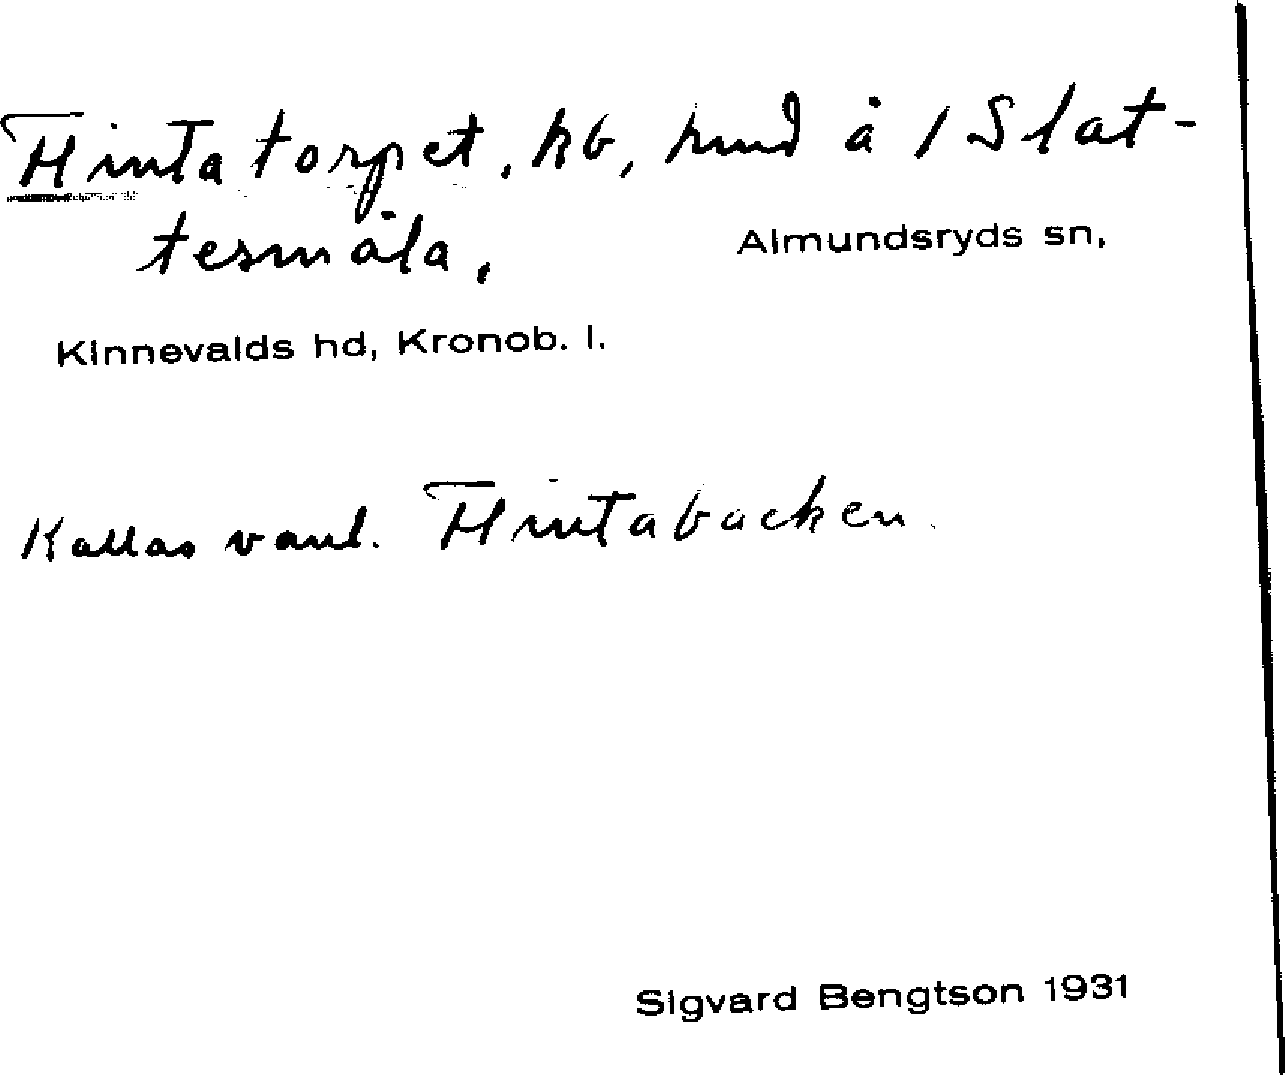 Hintatorpet, hb, hmd å 1 Slat-
tesmåla, Almundsryds sn,
Kinnevalds hd, Kronob. l.
Kallas vanl. Hintabacken.
Sigvard Bengtson 1931